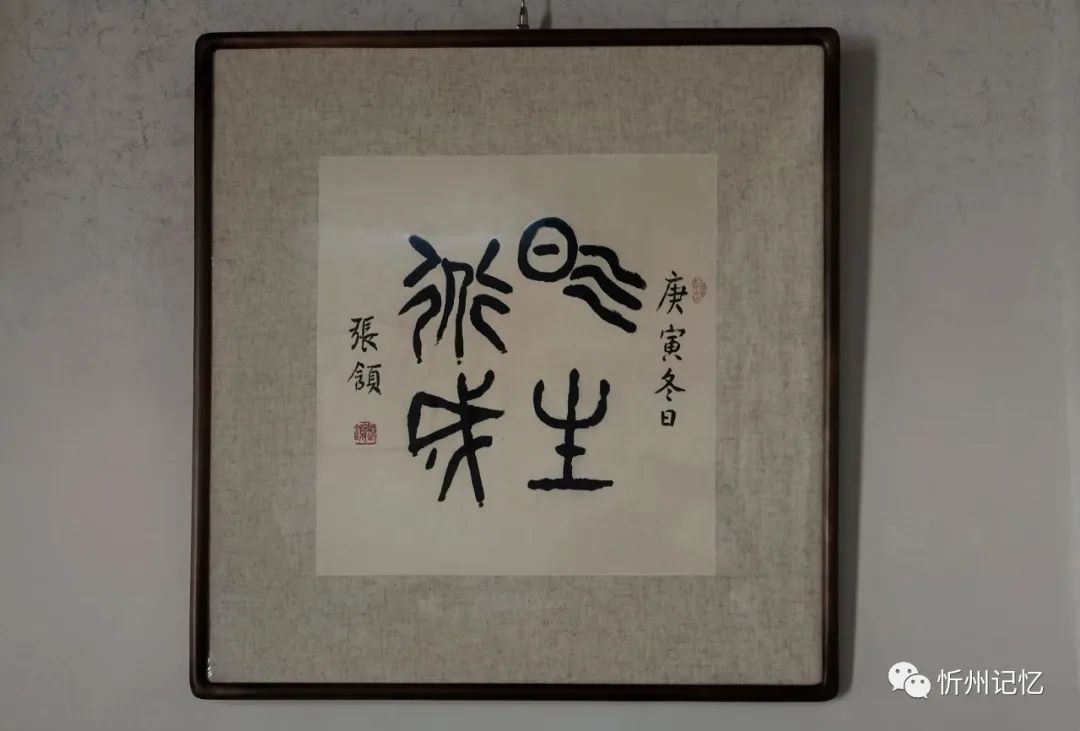 庚寅冬日
生
衍成
張頷
忻州记忆